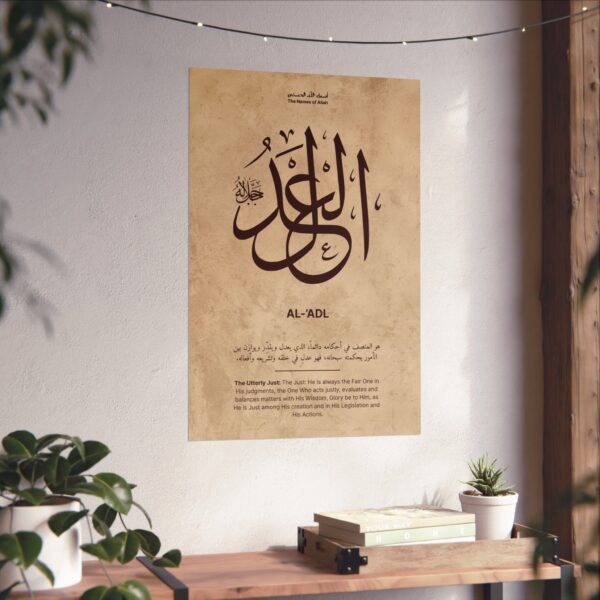 أسماء الله الحسنى
The Names of Allah
العدل
جل جلاله
AL-'ADL
هو المنصف في أحكامه دائماً، الذي يعدل ويقدّر ويوازن بين
الأمور بحكمته سبحانه، فهو عدل في خلقه وتشريعه وأفعاله.
The Utterly Just: The Just: He is always the Fair One in
His judgments, the One Who acts justly, evaluates and
balances matters with His Wisdom, Glory be to Him, as
He is Just among His creation and in His Legislation and
His Actions.
HOME